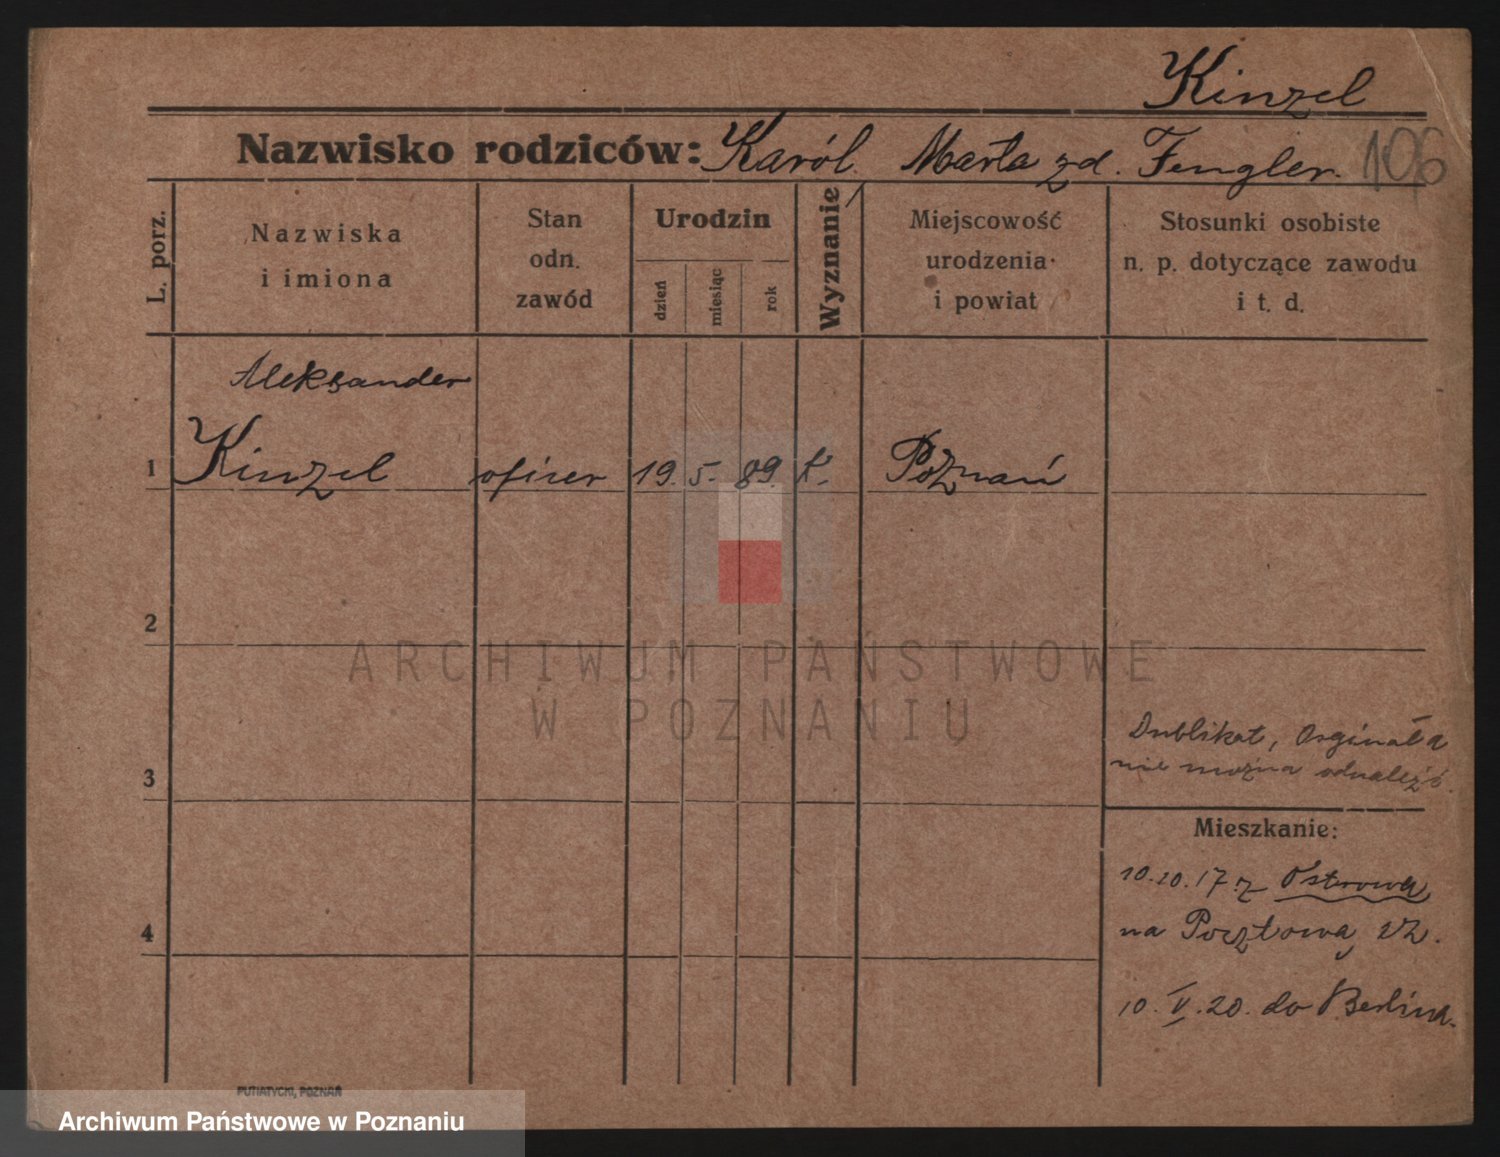 Kinzel
Nazwisko rodziców: Karól Marta zd. Fengler. 106
L. porz.
Nazwiska
i imiona
Stan
odn.
zawód
Urodzin
dzień
miesiąc
rok
Wyznanie
Miejscowość
urodzenia
i powiat
Stosunki osobiste
n. p. dotyczące zawodu
i t. d.
Aleksander
1 Kinzel oficer 19. 5. 89. K. Poznań
2
ARCHIWUM PAŃSTWOWE
W POZNANIU
Dublikat, Orginała
3 nie można odnaleźć.
Mieszkanie:
10.10.17. z Ostrowa
4 na Pocztową
10. V. 20. do Berlina.
PUTIATYCKI, POZNAŃ
Archiwum Państwowe w Poznaniu